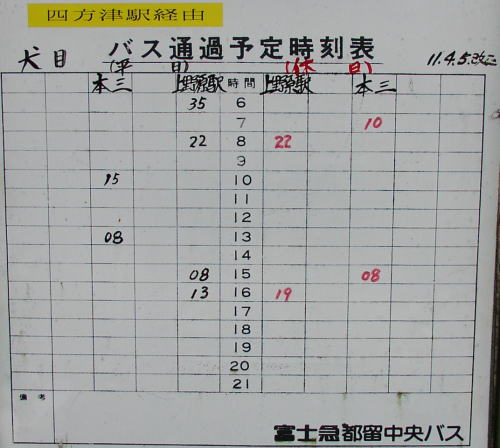 四方津駅経由
犬目 バス通過予定時刻表 11.4.5改正
(平日) (休日)
本三 上野原駅 時間 上野原駅 本三
35 6
7 10
22 8 22
9
15 10
11
12
08 13
14
08 15 08
13 16 19
17
18
19
20
21
備考
富士急都留中央バス